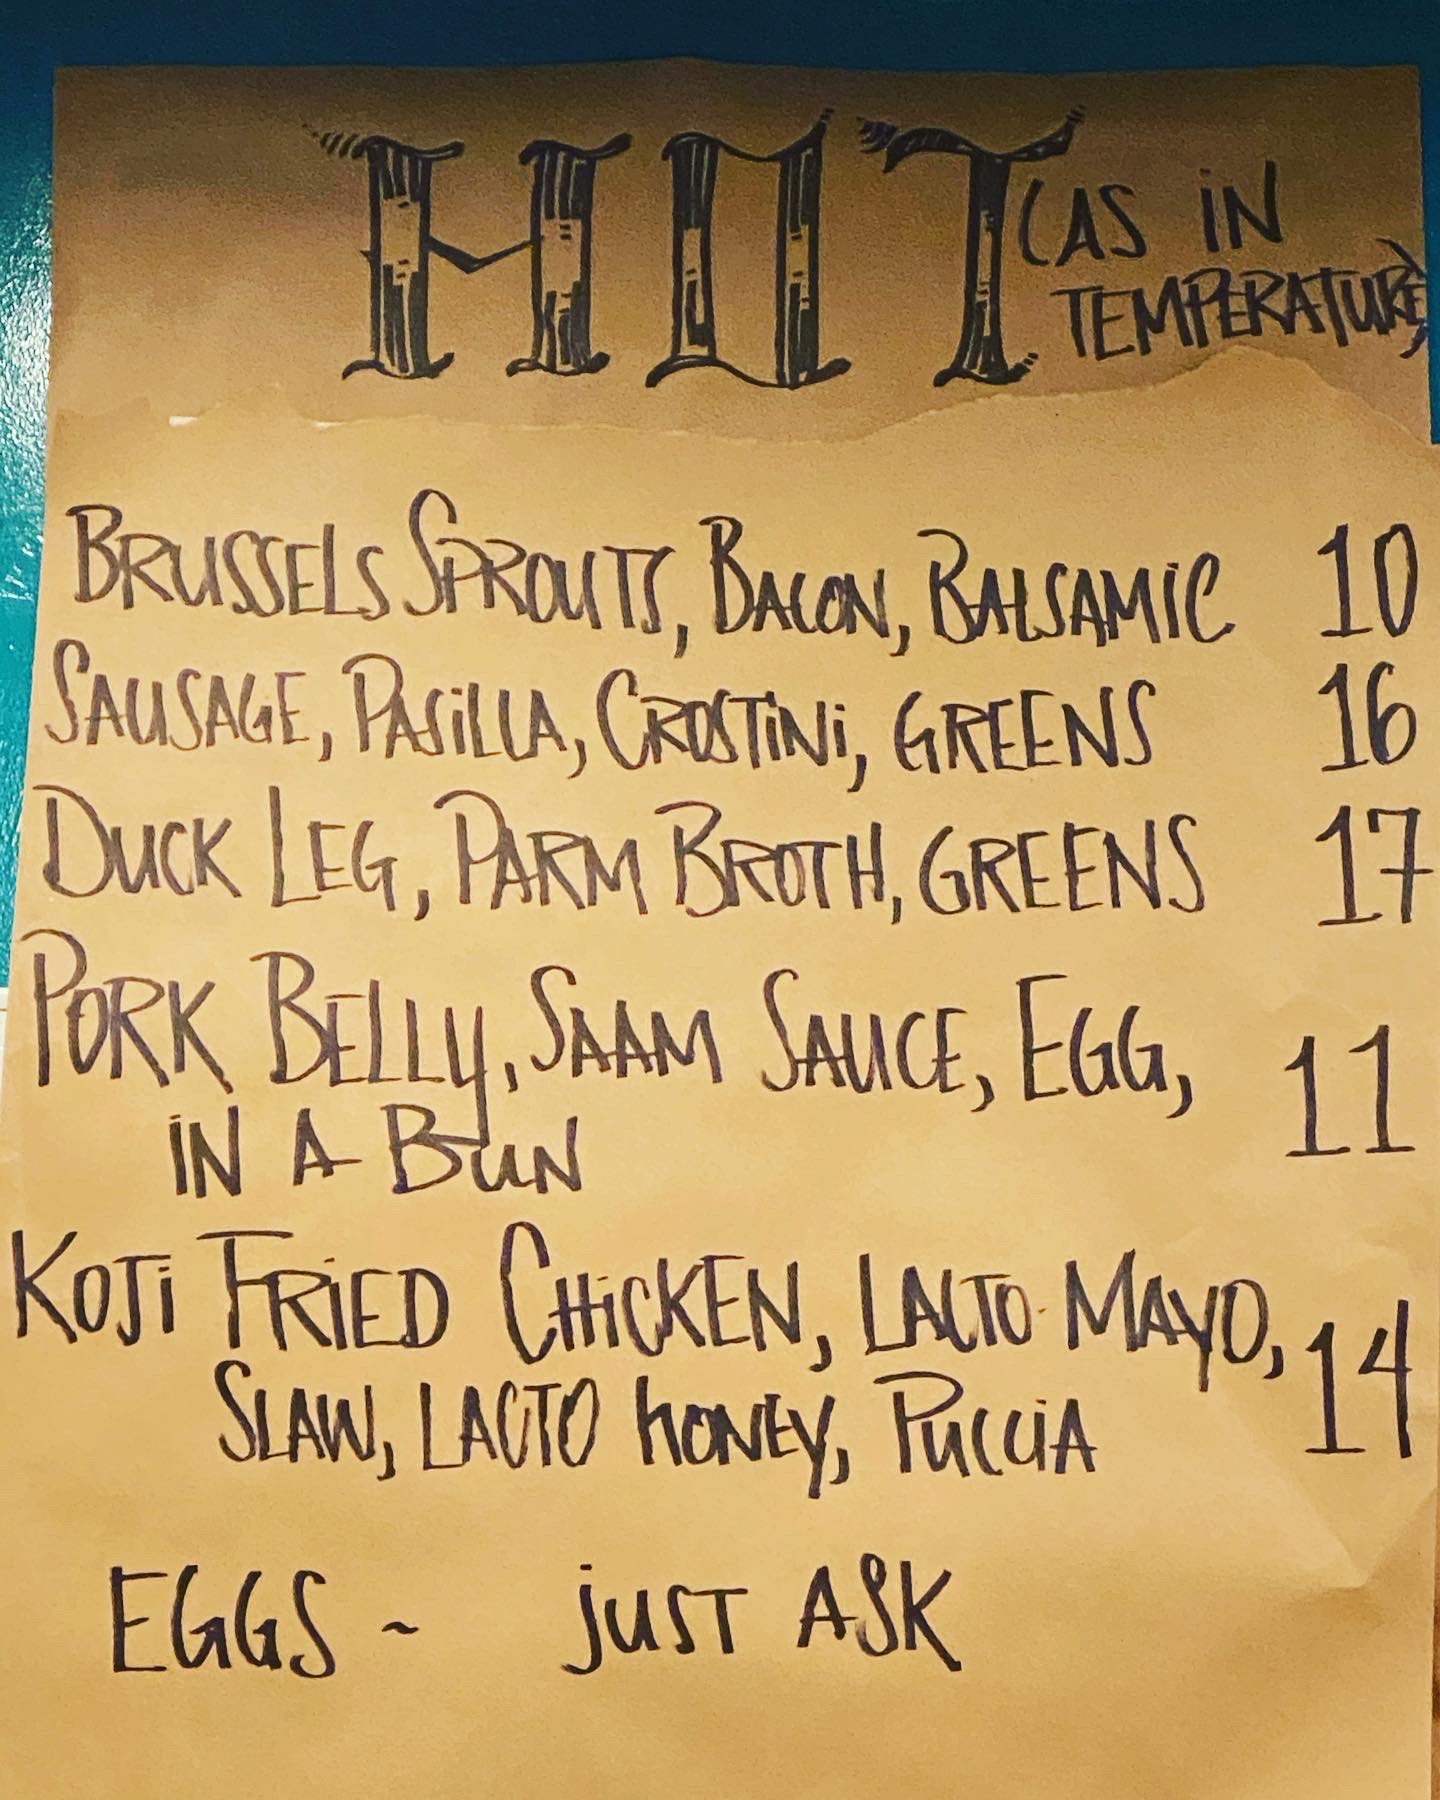 HOT (AS IN
TEMPERATURE)
BRUSSELS SPROUTS, BACON, BALSAMIC 10
SAUSAGE, PASILLA, CROSTINI, GREENS 16
DUCK LEG, PARM BROTH, GREENS 17
PORK BELLY, SAAM SAUCE, EGG,
IN A BUN 11
KOJI FRIED CHICKEN, LACTO MAYO,
SLAW, LACTO HONEY, PUCCIA 14
EGGS ~ JUST ASK